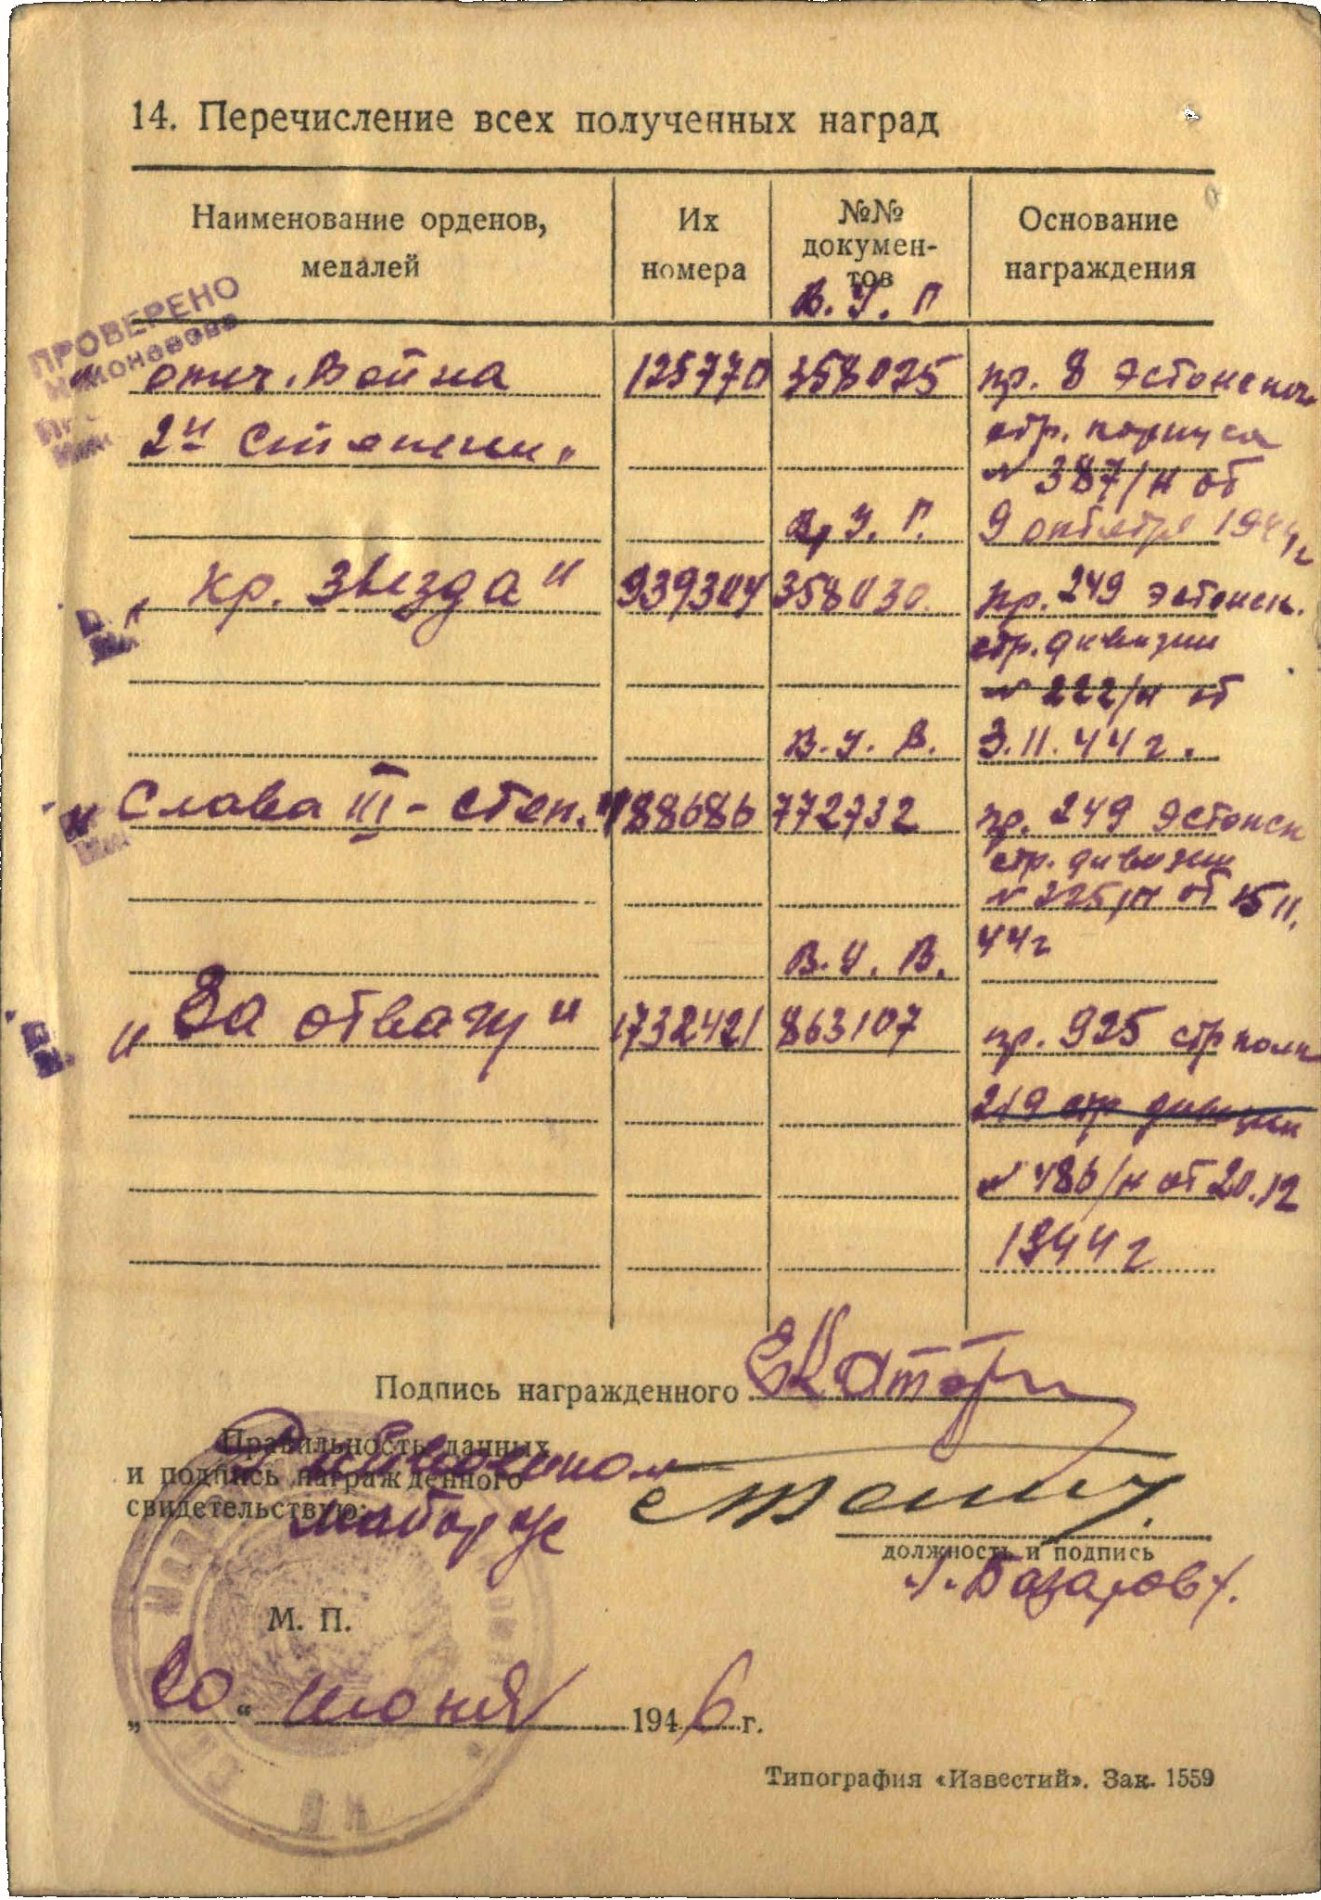 14. Перечисление всех полученных наград
Наименование орденов, медалей
Их номера
№№ документов
В. У. Г
Основание награждения
ПРОВЕРЕНО
„ отеч. Война
125770
358025
пр. 8 Эстонского
2й степени"
стр. корпуса
№ 387/н от
В. У. Г.
9 октября 1944 г
„ Кр. Звезда "
939304
358030.
пр. 249 эстонск.
стр. дивизии
№ 222/н от
В. У. В.
3.11.44 г.
„ Слава III - степ. "
188686
772732
пр. 249 Эстонск
стр. дивизии
№ 225/н от 15 11.
В. У. В.
44 г
„ За отвагу "
1732421
863107
пр. 925 стр полк
249 стр дивизии
№ 486/н от 20.12
1944 г
Подпись награжденного
Правильность данных
и подпись награжденного
свидетельствую:
майор
должность и подпись
/. Базаров /.
М. П.
„ 20 " июня 1946 г.
Типография «Известий». Зак. 1559